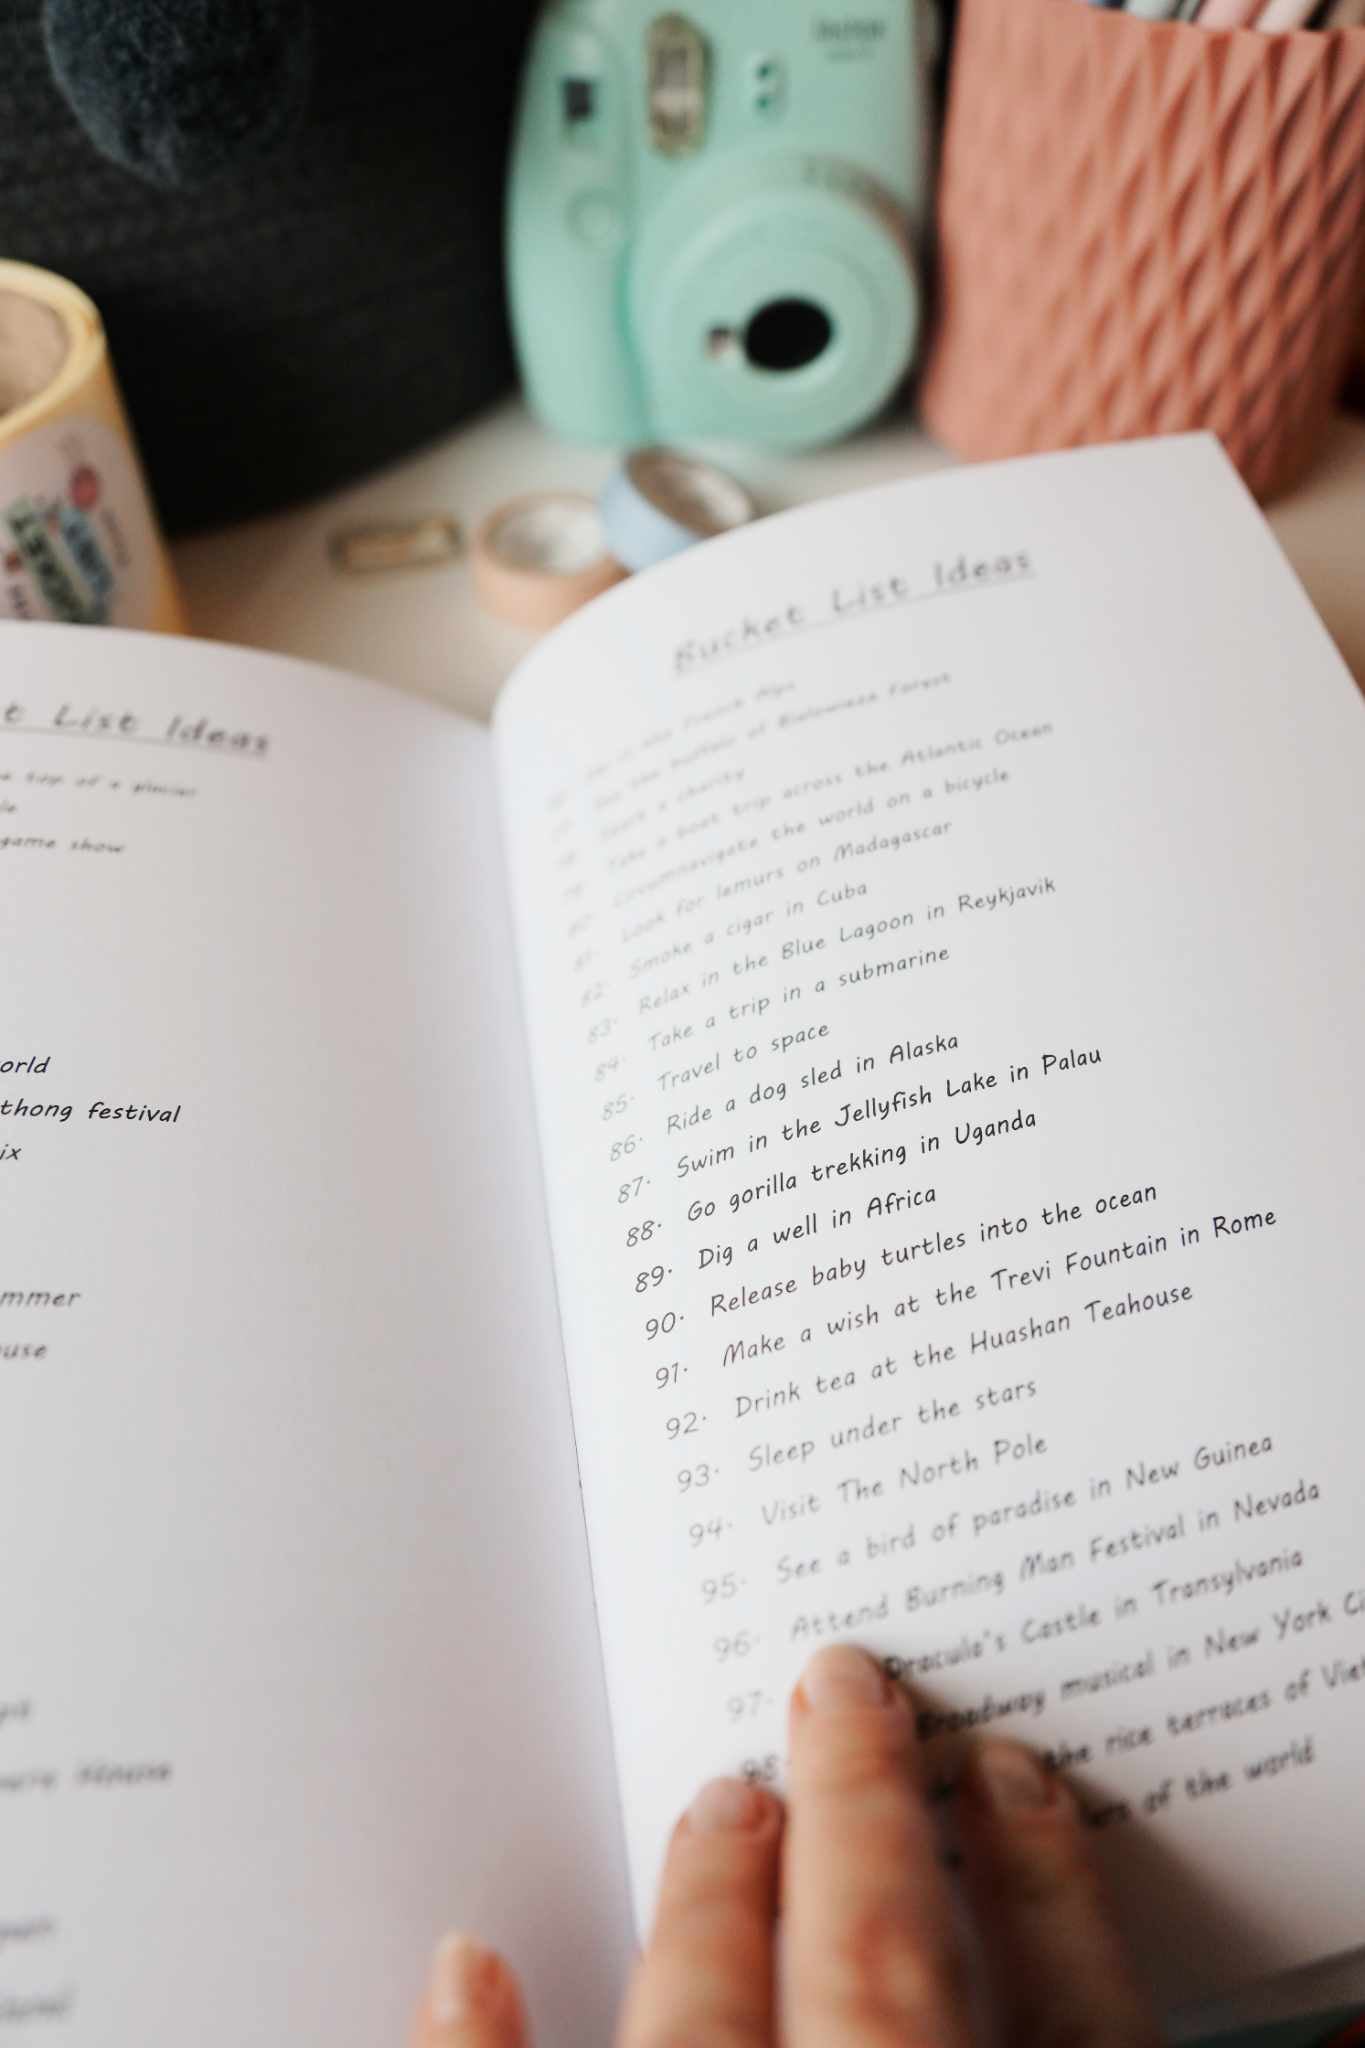 t List Ideas
top of a glacier
game show
orld
thong festival
ix
mmer
use
Bucket List Ideas
in the French Alps
the buffalo of Bialowieza Forest
Start a charity
79. Take a boat trip across the Atlantic Ocean
80. Circumnavigate the world on a bicycle
81. Look for lemurs on Madagascar
82. Smoke a cigar in Cuba
83. Relax in the Blue Lagoon in Reykjavik
84. Take a trip in a submarine
85. Travel to space
86. Ride a dog sled in Alaska
87. Swim in the Jellyfish Lake in Palau
88. Go gorilla trekking in Uganda
89. Dig a well in Africa
90. Release baby turtles into the ocean
91. Make a wish at the Trevi Fountain in Rome
92. Drink tea at the Huashan Teahouse
93. Sleep under the stars
94. Visit The North Pole
95. See a bird of paradise in New Guinea
96. Attend Burning Man Festival in Nevada
97. Dracula's Castle in Transylvania
98. Broadway musical in New York Ci
the rice terraces of Viet
of the world